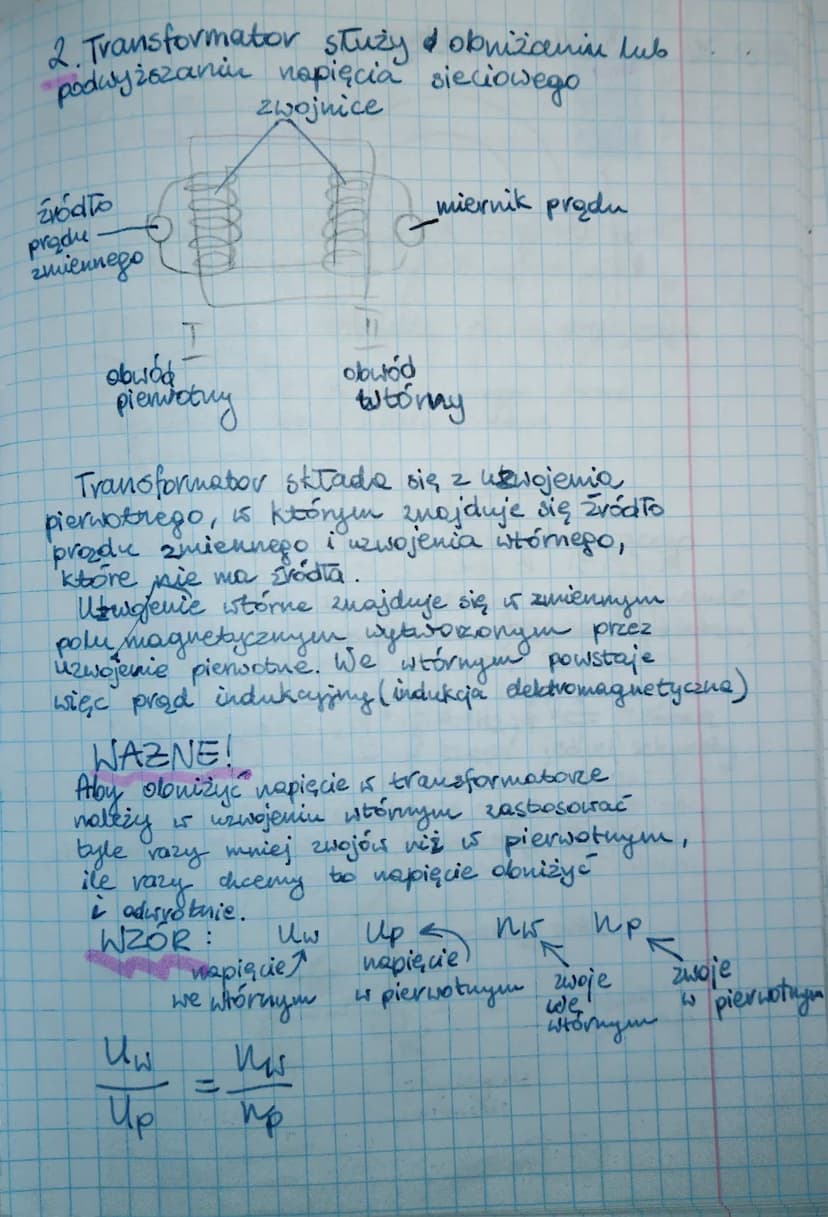 2. Transformator służy d obniżaniu lub
podwyższaniu napięcia sieciowego
zwojnice
źródło
prądu
zmiennego
miernik prądu
I
II
obwód
pierwotny
obwód
wtórny
Transformator składa się z uzwojenia
pierwotnego, w którym znajduje się źródło
prądu zmiennego i uzwojenia wtórnego,
które nie ma źródła.
Uzwojenie wtórne znajduje się w zmiennym
polu magnetycznym wytworzonym przez
uzwojenie pierwotne. We wtórnym powstaje
więc prąd indukcyjny (indukcja elektromagnetyczna)
WAŻNE!
Aby obniżyć napięcie w transformatorze
należy w uzwojeniu wtórnym zastosować
tyle razy mniej zwojów niż w pierwotnym,
ile razy chcemy to napięcie obniżyć
i odwrotnie.
WZÓR: Uw Up nw np
napięcie we wtórnym
napięcie w pierwotnym
zwoje we wtórnym
zwoje w pierwotnym
Uw/Up = nw/np